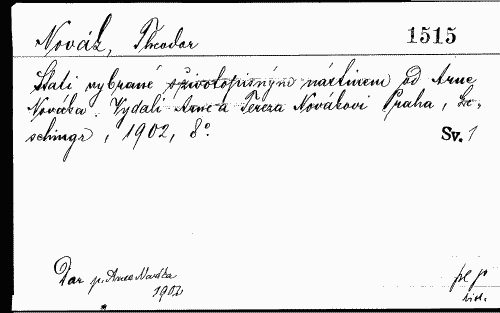 Novák, Theodor 1515
Stati vybrané s životopisným nástinem od Arne
Nováka. Vydali Arne a Tereza Novákovi Praha, Be-
schingr, 1902, 8°.
Sv. 1
Dar p. Arne Nováka
1902